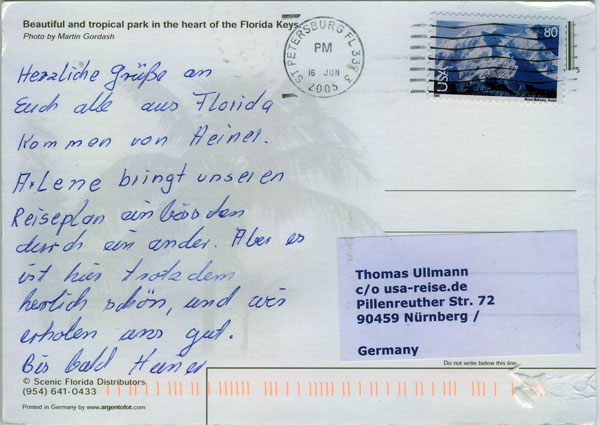 Beautiful and tropical park in the heart of the Florida Keys.
Photo by Martin Gordash
ST PETERSBURG FL 337 3
PM
16 JUN
2005
80
USA
Herzliche Grüße an
Euch alle aus Florida
kommen von Heiner.
Arlene bringt unseren
Reiseplan ein bissden
durch ein ander. Aber es
ist hier trotzdem
herlich schön, und wir
erholen uns gut.
Bis bald Heiner
Thomas Ullmann
c/o usa-reise.de
Pillenreuther Str. 72
90459 Nürnberg /
Germany
Do not write below this line.
© Scenic Florida Distributors
(954) 641-0433
Printed in Germany by www.argentofot.com